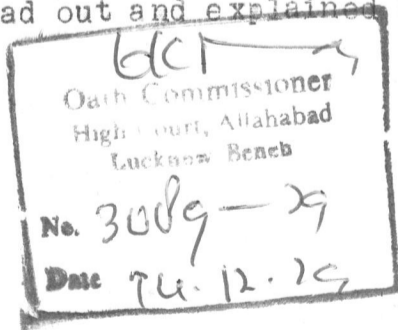 ad out and explained
Oath Commissioner
High Court, Allahabad
Lucknow Bench
No. 3089
Date